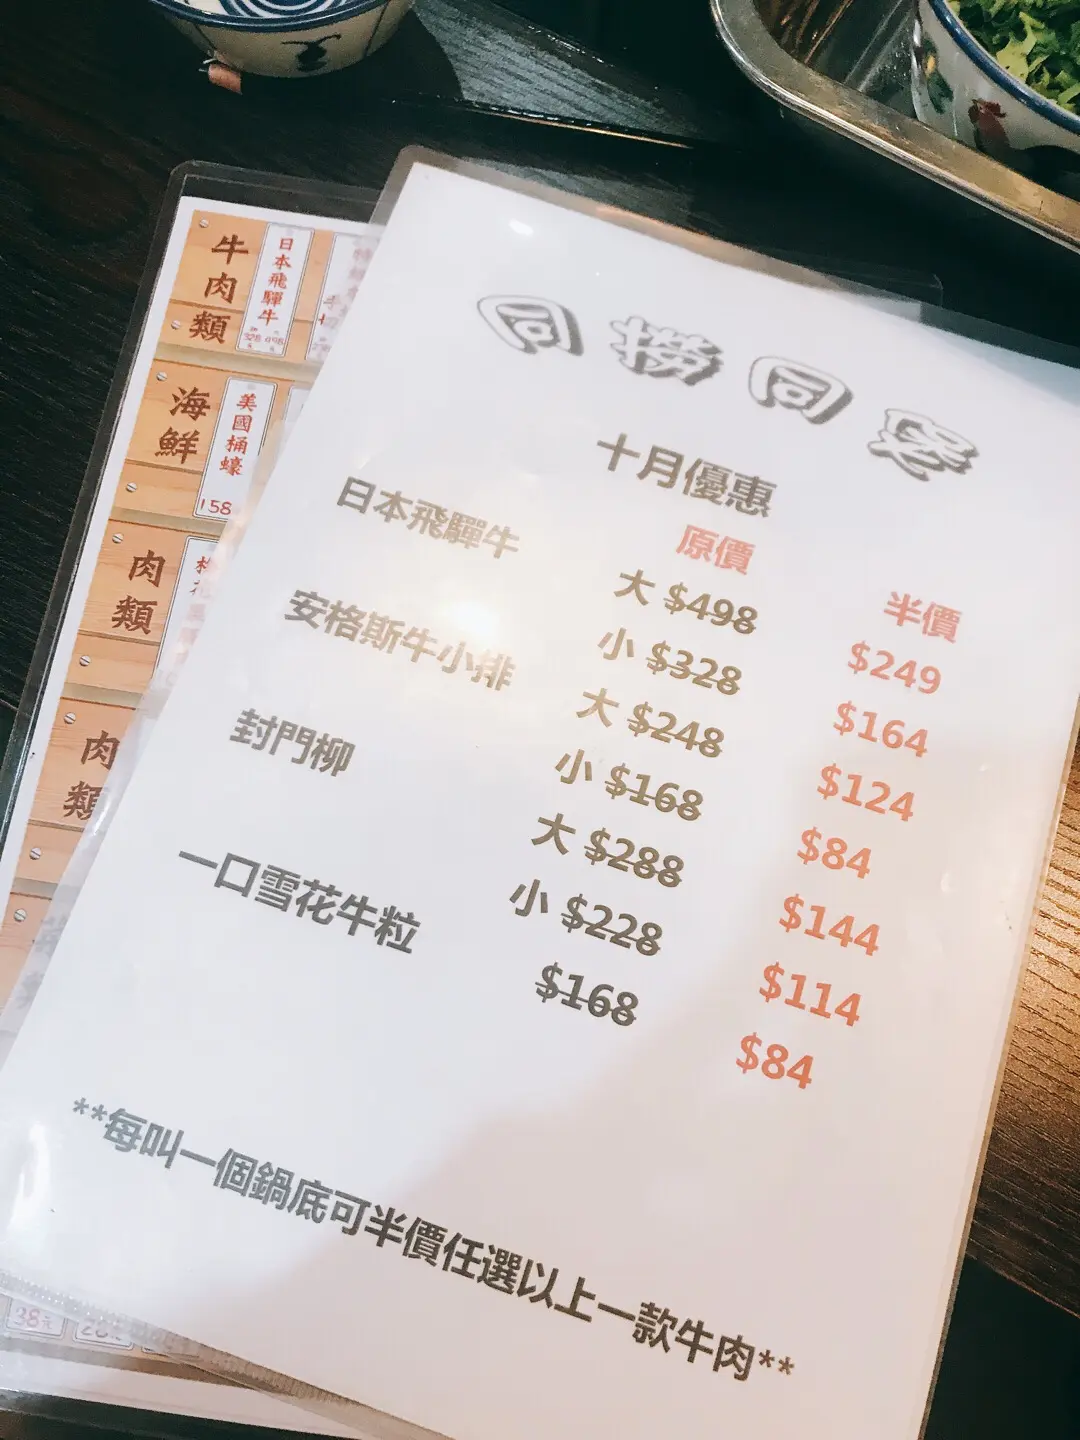 同撈同煲
十月優惠
原價 半價
日本飛驒牛 大 $498 $249
小 $328 $164
安格斯牛小排 大 $248 $124
小 $168 $84
封門柳 大 $288 $144
小 $228 $114
一口雪花牛粒 $168 $84
**每叫一個鍋底可半價任選以上一款牛肉**
牛肉類
日本飛驒牛
328 498
海鮮
美國桶蠔
158
肉類
肉類
38元